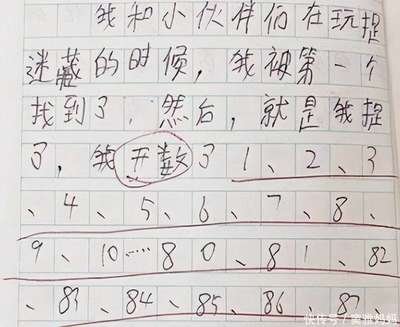 我和小伙伴们在玩捉
迷藏的时候，我被第一个
找到了，然后，就是我捉
了，我开数了1、2、3
、4、5、6、7、8、
9、10……80、81、82
、83、84、85、86、87、